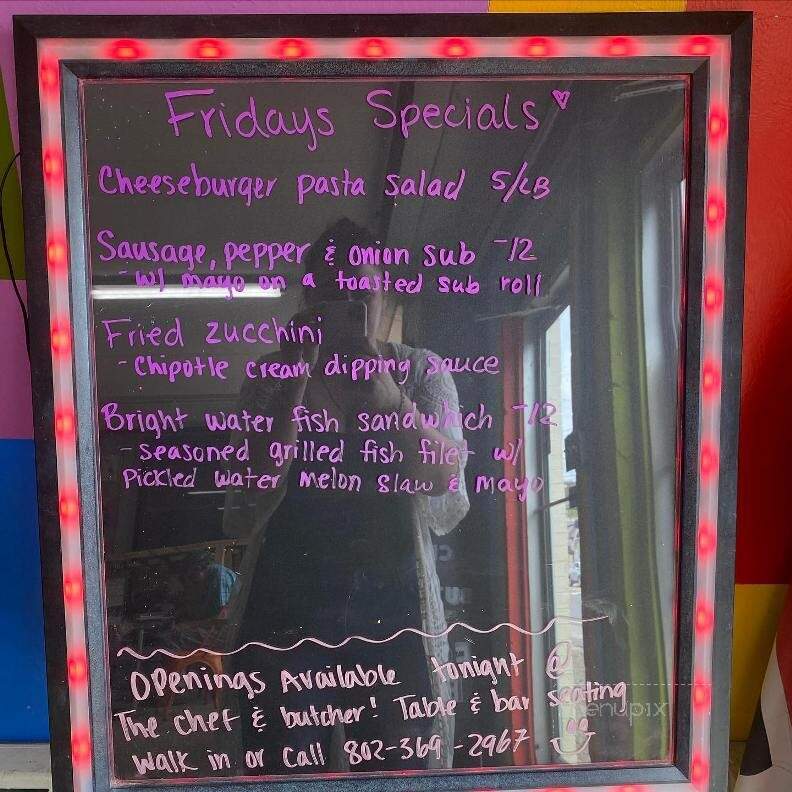 Fridays Specials ♡
Cheeseburger pasta salad 5/LB
Sausage, pepper & onion sub -12
- w/ mayo on a toasted sub roll
Fried zucchini
- Chipotle cream dipping sauce
Bright water fish sandwhich -12
- seasoned grilled fish filet w/
Pickled water melon slaw & mayo
Openings Available tonight @
The chef & butcher! Table & bar seating
Walk in or Call 802-369-2967
menupix